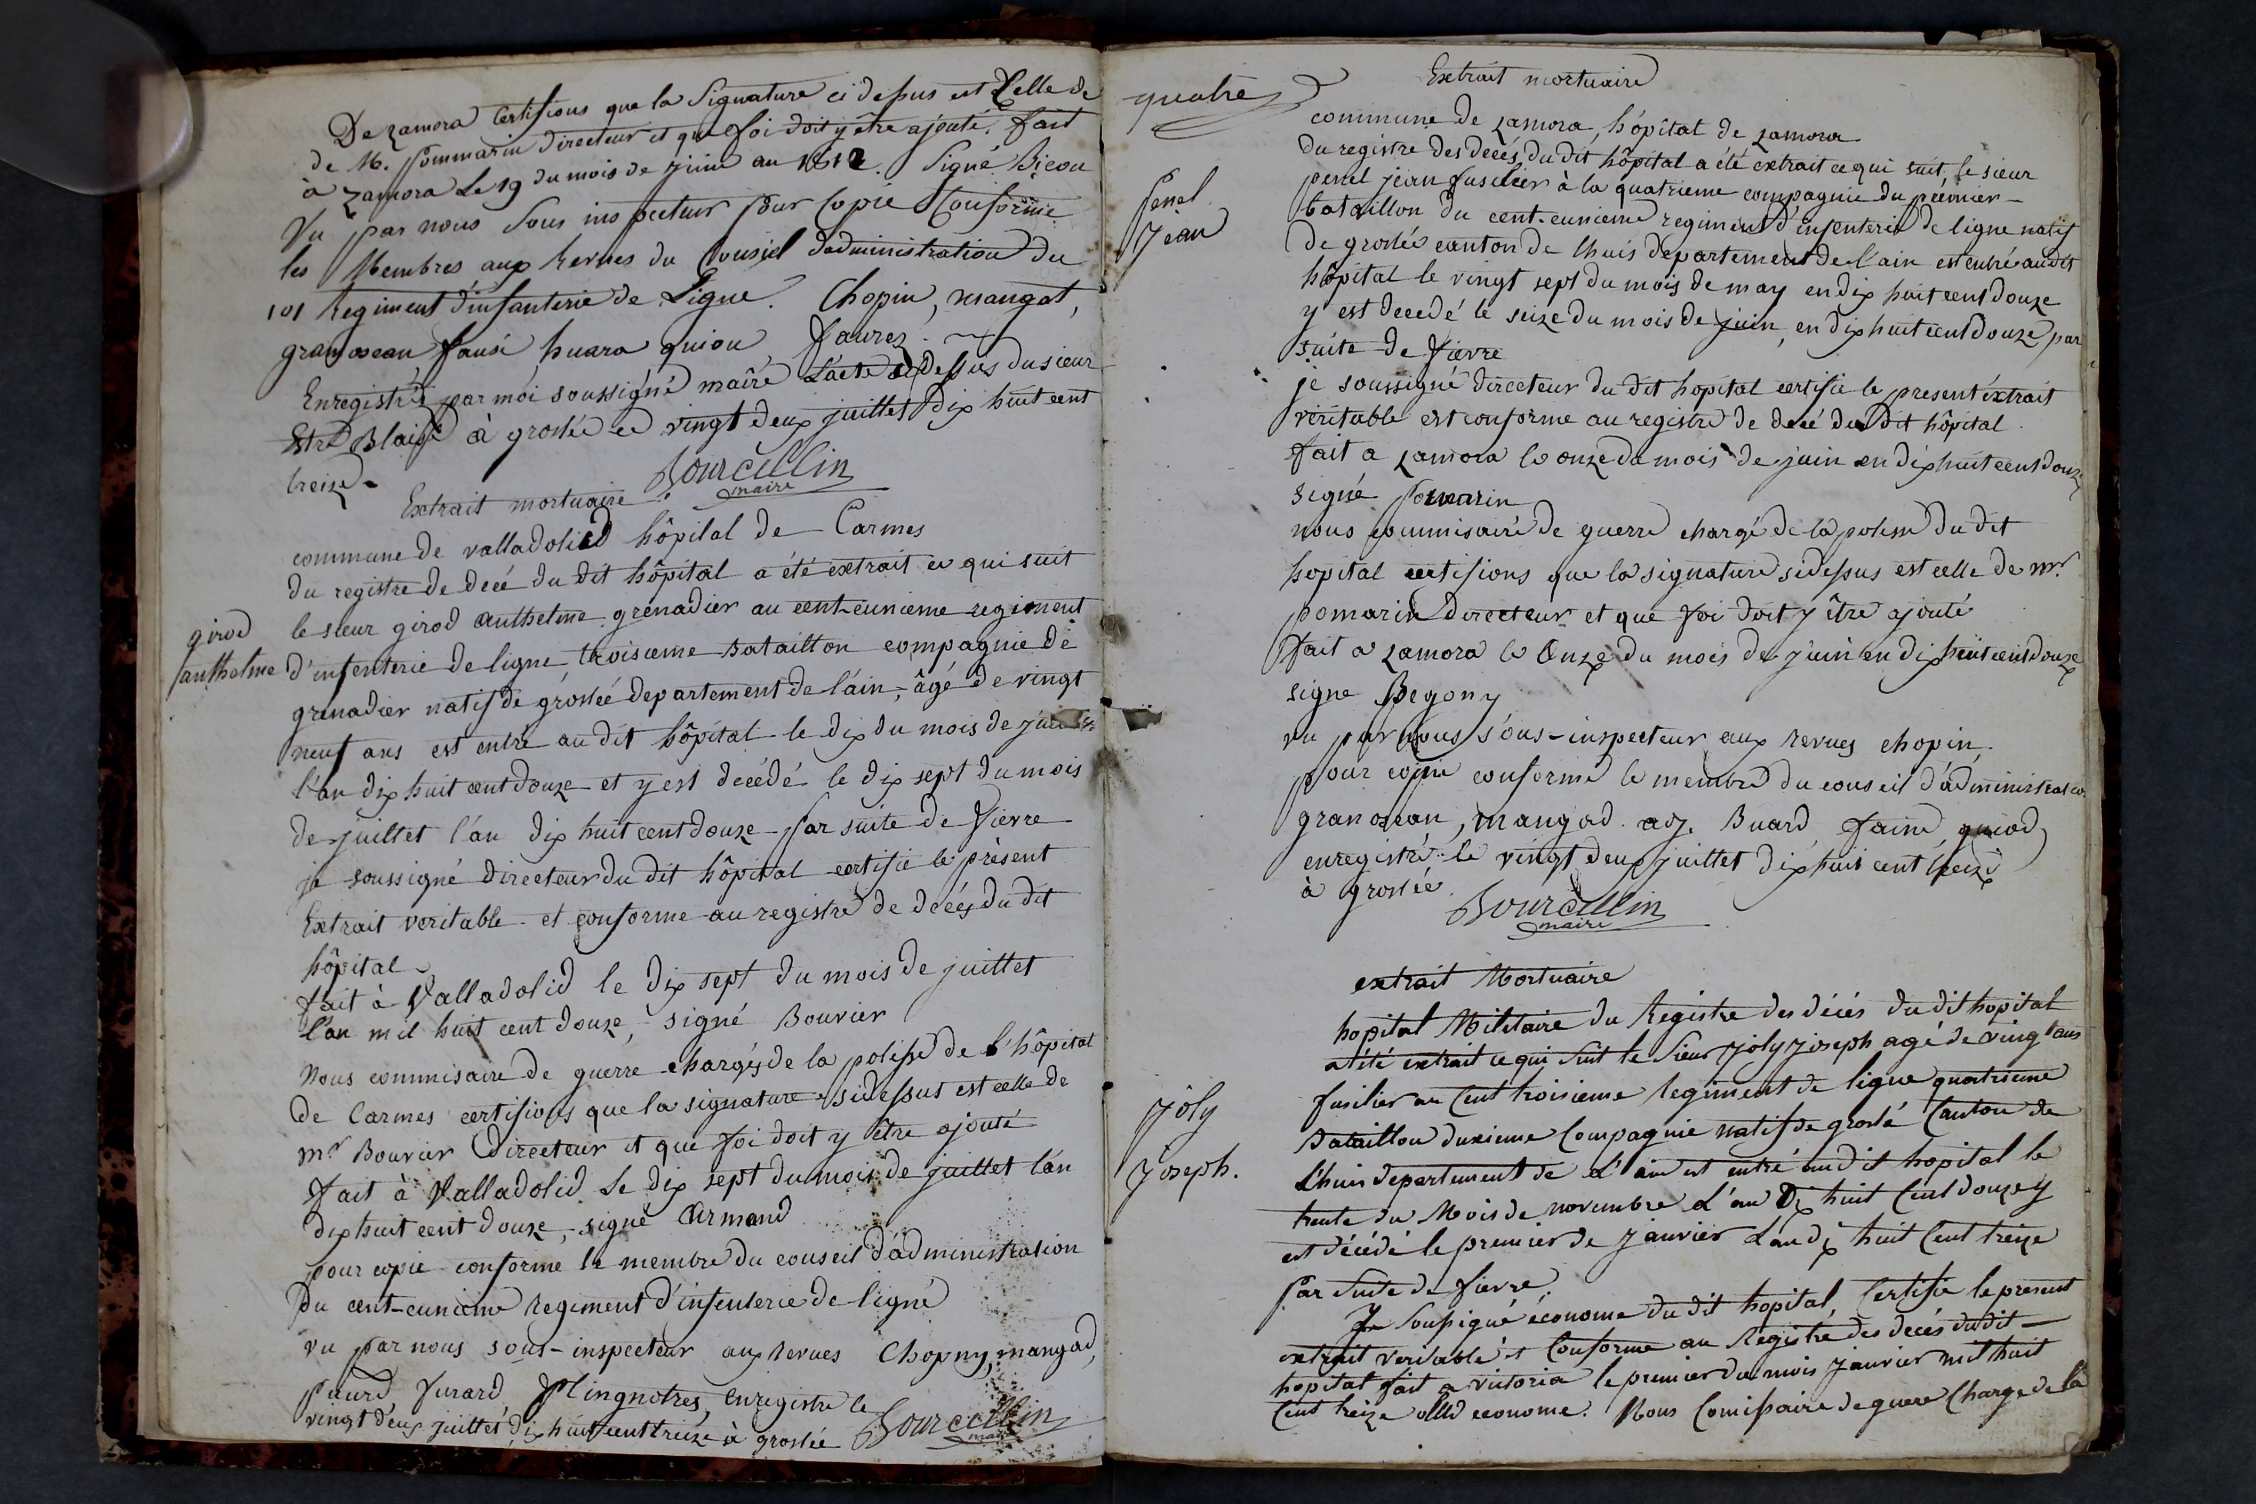 De zamora Certifions que la Signature ci dessus est Celle de
de M. Pommarin directeur et que foi doit y être ajouté. fait
à zamora Le 19 du mois de juin an 1812. Signé Bigou
Vu par nous Sous inspecteur pour Copie Conforme
les Membres aux Revues du Conseil d'administration du
101 Regiment d'infanterie de Ligne. Chopin, mangot,
granosean fausé huara quiou faures
Enregistré par moi soussigné maire L'acte ci dessus du sieur
Estre Blaise à groslée ce vingt deux juillet dix huit cent
treize
Bourcellin
maire
Extrait mortuaire
commune de valladolied hôpital de Carmes
du registre de decé du dit hôpital a été extrait ce qui suit
girod
anthelme
le sieur girod anthelme grenadier au cent-eunieme regiment
d'infenterie de ligne troisieme Bataillon compagnie de
grenadier natif de groslée departement de l'ain, âgé de vingt
neuf ans est entré au dit hôpital le dix du mois de
l'an dix huit cent douze et y est decédé le dix sept du mois
de juillet l'an dix huit cent douze par suite de fievre
je soussigné directeur du dit hôpital certifie le présent
Extrait veritable et conforme au registre de decés du dit
hôpital
fait à Valladolid le dix sept du mois de juillet
l'an mil huit cent douze, signé Bouvier
Nous commisaire de guerre chargés de la polisse de l'hôpital
de Carmes certifions que la signature sidessus est celle de
mr Bouvier Directeur et que foi doit y être ajouté
fait à Valladolid le dix sept du mois de juillet l'an
dix huit cent douze, signé Armand
pour copie conforme le membre du conseil d'administration
Du cent-eunieme regiment d'infenterie de ligne
vu par nous sous-inspecteur aux revues Chopny, mangad,
furard Enregistre le
vingt deux juillet dix huit cent treize à groslée Bourcellin
maire
quatre
Extrait mortuaire
commune de zamora, hôpital de zamora
du registre des decés du dit hôpital a été extrait ce qui suit, le sieur
Penel
Jean
penel jean fusilier à la quatrieme compagnie du premier
bataillon du cent-eunieme regiment d'infenterie de ligne natif
de groslée canton de lhuis departement de l'ain est entré audit
hôpital le vingt sept du mois de may en dix huit cent douze
y est decedé le seize du mois de juin, en dix huit cent douze par
suite de fievre
je soussigné directeur du dit hopital certifie le present extrait
véritable est conforme au registre de decé du dit hôpital
fait a zamora le onze du mois de juin en dix huit cent douze
signé Pomarin
nous commisaire de guerre chargé de la polisse du dit
hopital certifions que la signature sidessus est celle de mr
pomarin directeur et que foi doit y être ajouté
fait a zamora le Onze du mois de juin en dix huit cent douze
signe Begony
vu par nous sous-inspecteur aux revues chopin
pour copie conforme le membre du conseil d'administration
granosean, mangad adj. Buard faine quiod
enregistré le vingt deux juillet dix huit cent treize
à groslée
Bourcellin
maire
extrait Mortuaire
hopital Militaire du Registre des décés du dit hopital
a été extrait ce qui suit le Sieur joly joseph agé de vingt ans
Joly
Joseph.
fusilier au Cent troisieme regiment de ligne quatrieme
Bataillon duxieme Compagnie natif de groslé Canton de
Lhuis departement de L'ain est entré au dit hopital le
trente du Mois de novembre L'an Dix huit Cent douze y
est décédé le premier de janvier L'an dix huit Cent treize
par Suite de fievre,
Je Soussigné économe du dit hopital, Certifie le present
extrait veritable et Conforme au Registre des décés du dit
hopital fait a victoria le premier du mois janvier mil huit
Cent treize économe. Nous Comissaire de guerre Chargé de la